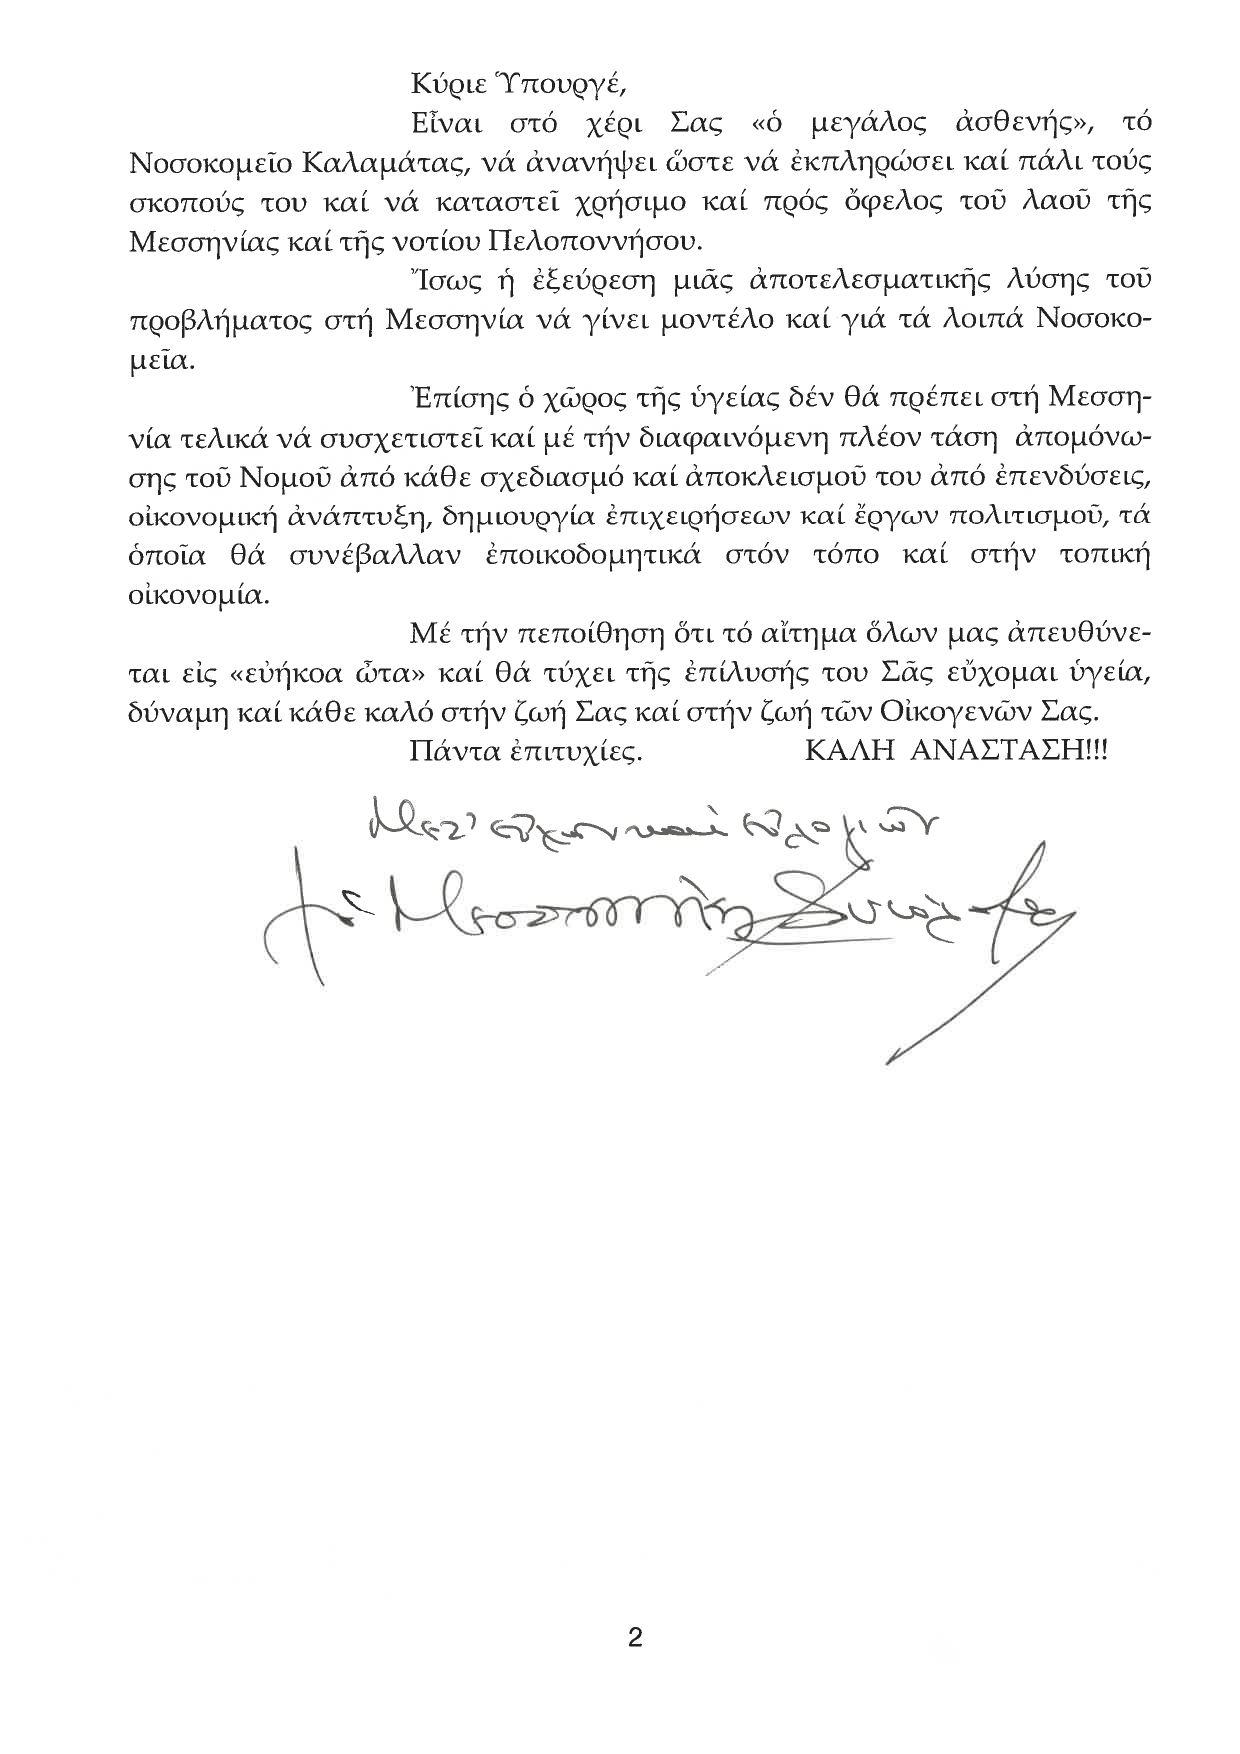 Κύριε Ὑπουργέ,
Εἶναι στό χέρι Σας «ὁ μεγάλος ἀσθενής», τό
Νοσοκομεῖο Καλαμάτας, νά ἀνανήψει ὥστε νά ἐκπληρώσει καί πάλι τούς
σκοπούς του καί νά καταστεῖ χρήσιμο καί πρός ὄφελος τοῦ λαοῦ τῆς
Μεσσηνίας καί τῆς νοτίου Πελοποννήσου.
Ἴσως ἡ ἐξεύρεση μιᾶς ἀποτελεσματικῆς λύσης τοῦ
προβλήματος στή Μεσσηνία νά γίνει μοντέλο καί γιά τά λοιπά Νοσοκο-
μεῖα.
Ἐπίσης ὁ χῶρος τῆς ὑγείας δέν θά πρέπει στή Μεσση-
νία τελικά νά συσχετιστεῖ καί μέ τήν διαφαινόμενη πλέον τάση ἀπομόνω-
σης τοῦ Νομοῦ ἀπό κάθε σχεδιασμό καί ἀποκλεισμοῦ του ἀπό ἐπενδύσεις,
οἰκονομική ἀνάπτυξη, δημιουργία ἐπιχειρήσεων καί ἔργων πολιτισμοῦ, τά
ὁποῖα θά συνέβαλλαν ἐποικοδομητικά στόν τόπο καί στήν τοπική
οἰκονομία.
Μέ τήν πεποίθηση ὅτι τό αἴτημα ὅλων μας ἀπευθύνε-
ται εἰς «εὐήκοα ὦτα» καί θά τύχει τῆς ἐπίλυσής του Σᾶς εὔχομαι ὑγεία,
δύναμη καί κάθε καλό στήν ζωή Σας καί στήν ζωή τῶν Οἰκογενῶν Σας.
Πάντα ἐπιτυχίες. ΚΑΛΗ ΑΝΑΣΤΑΣΗ!!!
Μετ' εὐχῶν καὶ εὐλογιῶν
Μεσσηνίας
2